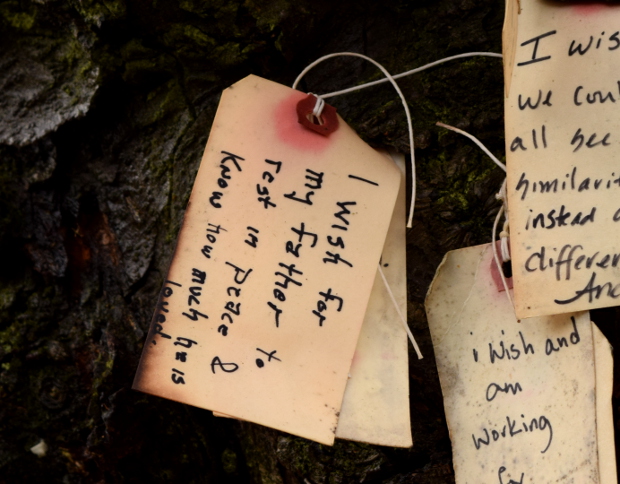 I wish for
my father to
rest in peace &
Know how much he is
loved
I wis
we coul
all see
similarit
instead o
differen
And
i wish and
am
working